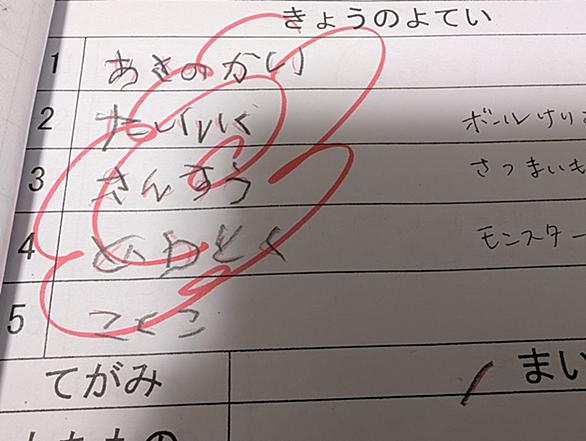 きょうのよてい
1 あさのかい
2 たいいく ボールけり
3 さんすう さつまいも
4 どうとく モンスター
5 こくご
てがみ まい